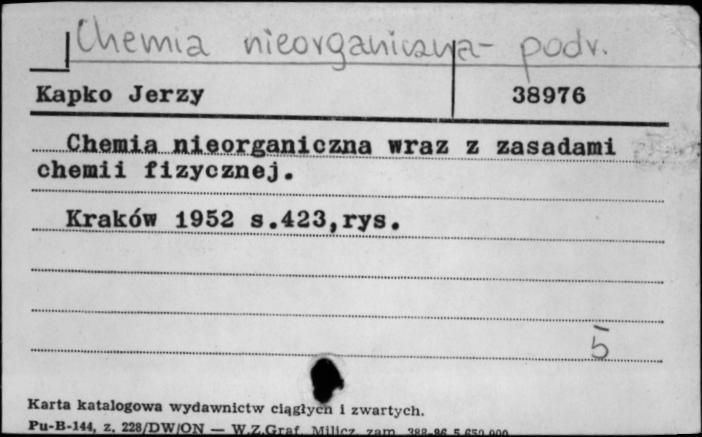 Chemia nieorganiczna - podr.
Kapko Jerzy 38976
Chemia nieorganiczna wraz z zasadami
chemii fizycznej.
Kraków 1952 s.423,rys.
5
Karta katalogowa wydawnictw ciągłych i zwartych.
Pu-B-144, z. 228/DW/ON — W.Z.Graf. Milicz zam. 388-86 5.650.000